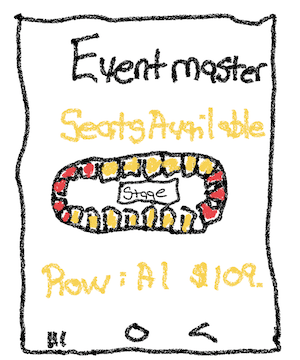 Eventmaster
Seats Available
Stage
Row: A1 $109.